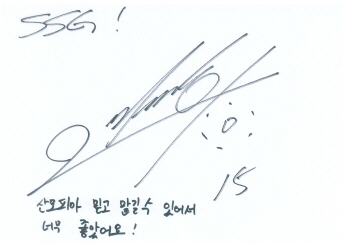 SSG!
15
산모피아 믿고 맡길수 있어서
너무 좋았어요!